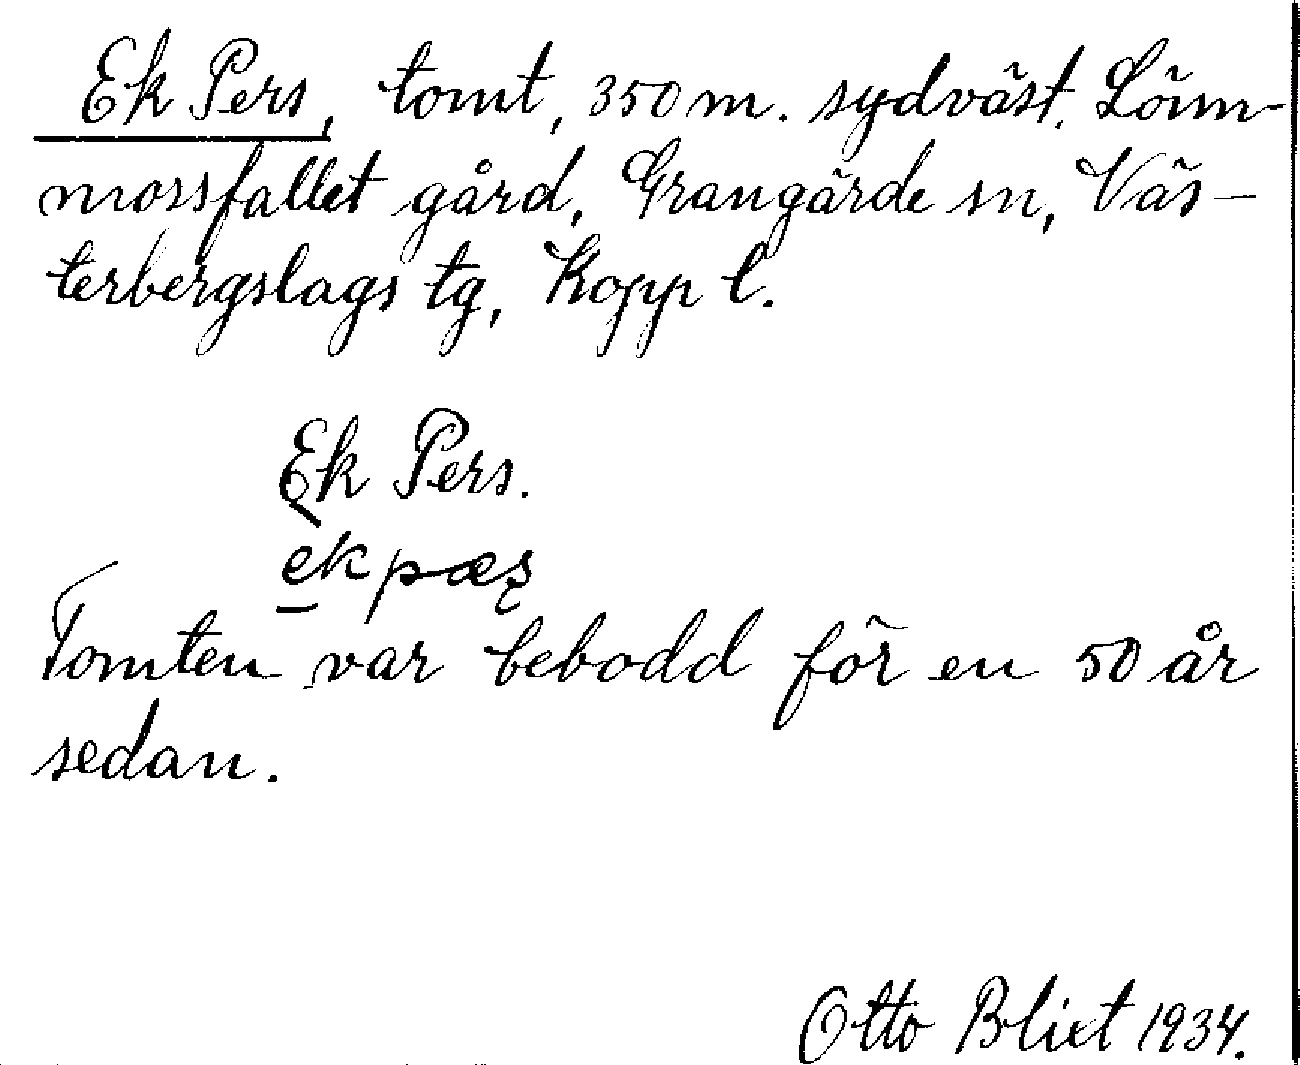 Ek Pers, tomt, 350 m. sydväst. Löm-
mossfallet gård, Grangärde sn, Väs-
terbergslags tg, Kopp l.
Ek Pers.
ek pæʂ
Tomten var bebodd för en 50 år
sedan.
Otto Blixt 1934.